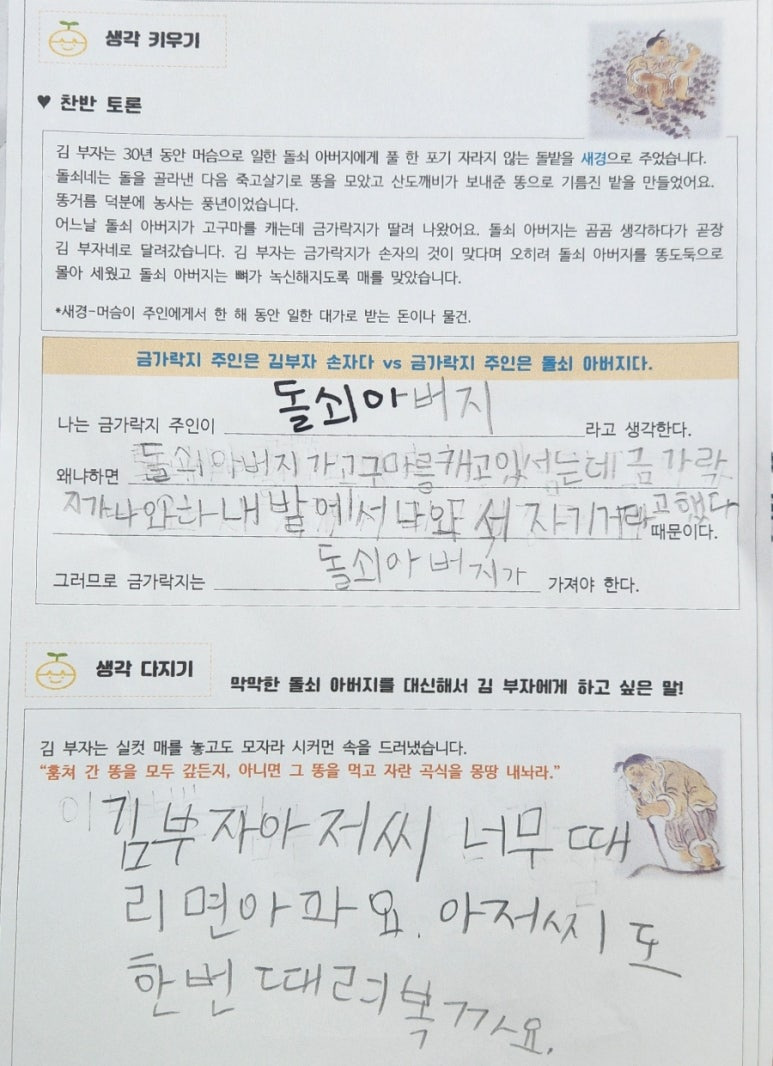 생각 키우기
♥ 찬반 토론
김 부자는 30년 동안 머슴으로 일한 돌쇠 아버지에게 풀 한 포기 자라지 않는 돌밭을 새경으로 주었습니다.
돌쇠네는 돌을 골라낸 다음 죽고살기로 똥을 모았고 산도깨비가 보내준 똥으로 기름진 밭을 만들었어요.
똥거름 덕분에 농사는 풍년이었습니다.
어느날 돌쇠 아버지가 고구마를 캐는데 금가락지가 딸려 나왔어요. 돌쇠 아버지는 곰곰 생각하다가 곧장
김 부자네로 달려갔습니다. 김 부자는 금가락지가 손자의 것이 맞다며 오히려 돌쇠 아버지를 똥도둑으로
몰아 세웠고 돌쇠 아버지는 뼈가 녹신해지도록 매를 맞았습니다.
*새경-머슴이 주인에게서 한 해 동안 일한 대가로 받는 돈이나 물건.
금가락지 주인은 김부자 손자다 vs 금가락지 주인은 돌쇠 아버지다.
나는 금가락지 주인이 돌쇠아버지 라고 생각한다.
왜냐하면 돌쇠아버지가고구마를캐고있서는데 금가락
지가나와하내밭에서나와서자기거라고했다 때문이다.
그러므로 금가락지는 돌쇠아버지가 가져야 한다.
생각 다지기
막막한 돌쇠 아버지를 대신해서 김 부자에게 하고 싶은 말!
김 부자는 실컷 매를 놓고도 모자라 시커먼 속을 드러냈습니다.
“훔쳐 간 똥을 모두 갚든지, 아니면 그 똥을 먹고 자란 곡식을 몽땅 내놔라.”
김부자아저씨 너무때
리면아파요. 아저씨도
한번때려복까요.